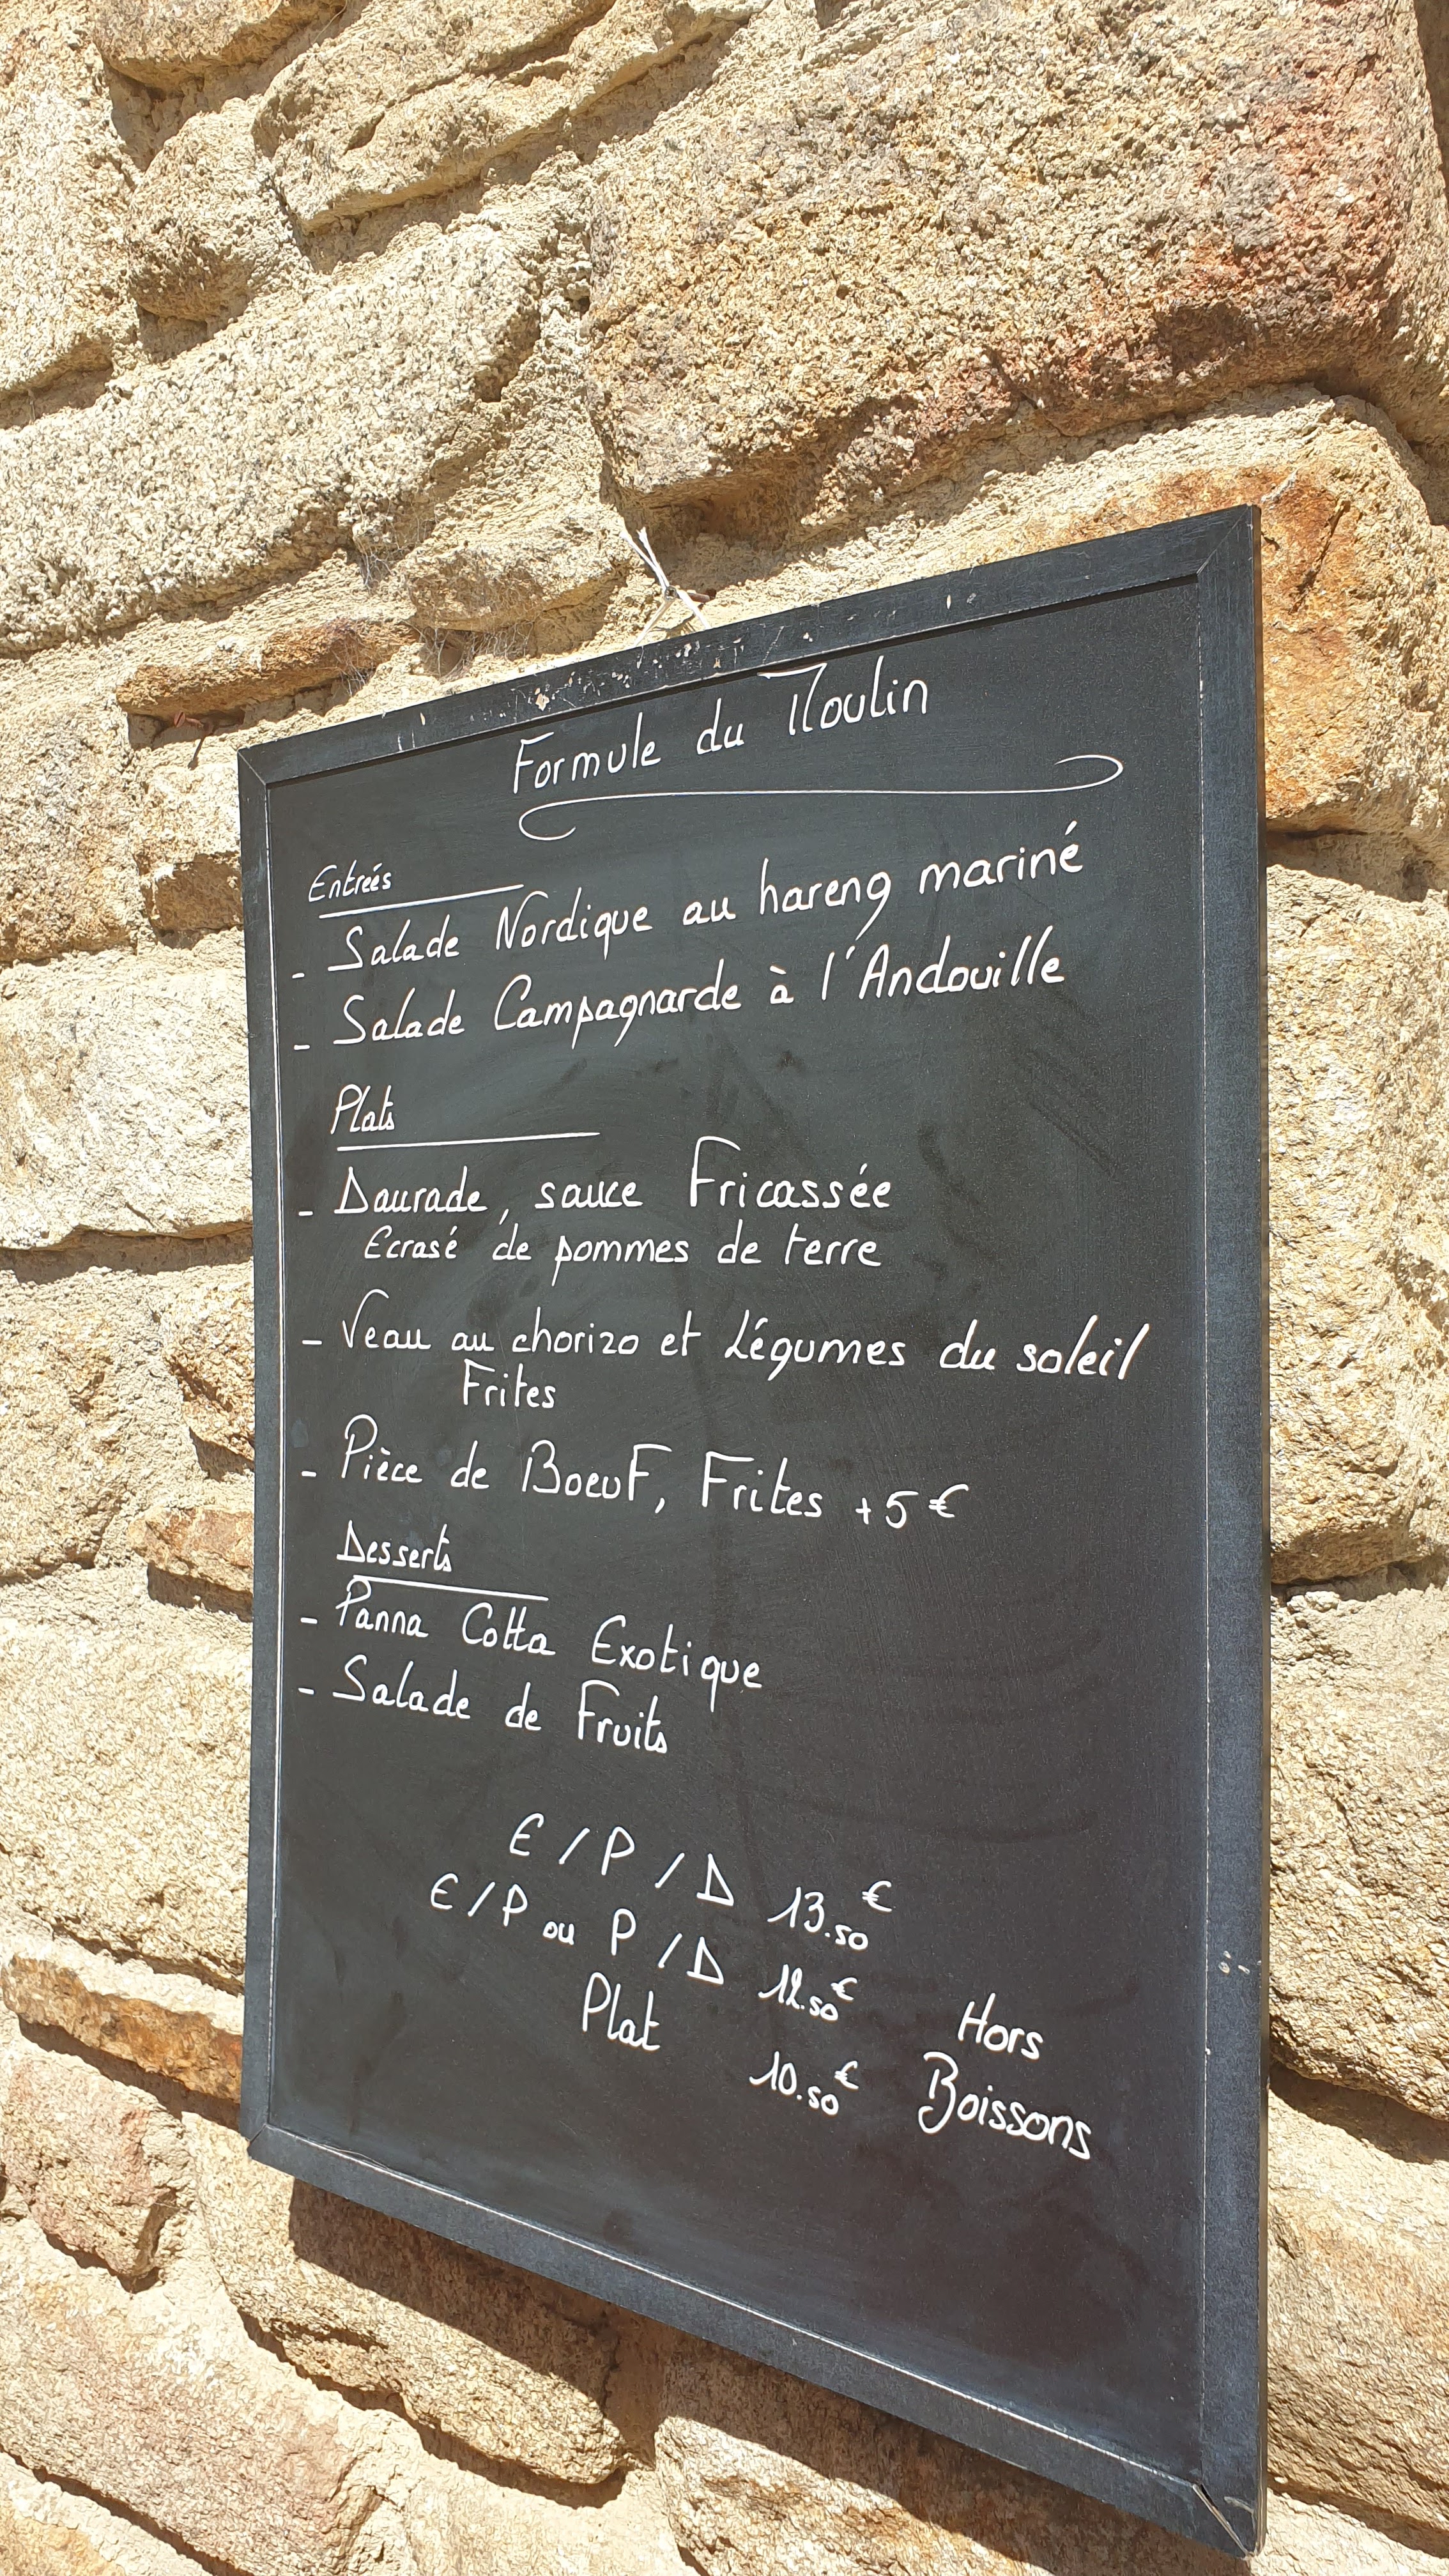 Formule du Moulin
Entreés
- Salade Nordique au hareng mariné
- Salade Campagnarde à l'Andouille
Plats
- Daurade, sauce Fricassée
Ecrasé de pommes de terre
- Veau au chorizo et Légumes du soleil
Frites
- Pièce de Boeuf, Frites +5€
Desserts
- Panna Cotta Exotique
- Salade de Fruits
E / P / D 13.50€
E / P ou P / D 12.50€
Plat 10.50€
Hors
Boissons